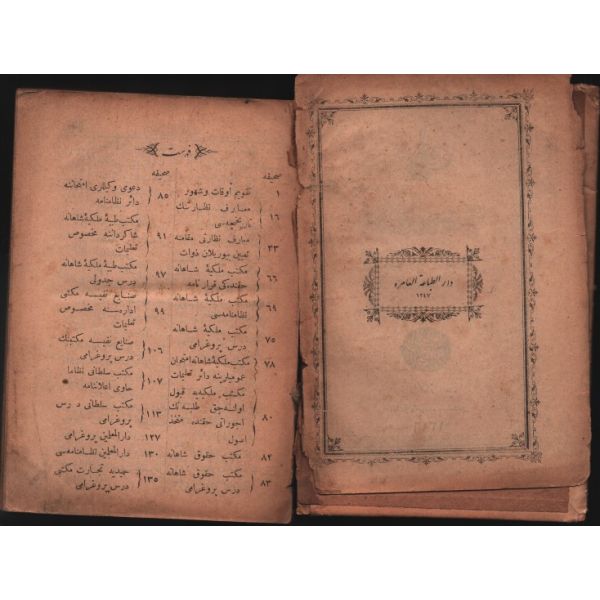 فهرست
صحیفه
١ تقویم اوقات وشهور
١٦ معارف نظارتنك تاریخچه‌سی
٣٣ معارف نظارتی مقامنه تعیین بیوریلان ذوات
٦٦ مكتب ملكیهٔ شاهانه حقنده‌كی قرارنامه
٦٩ مكتب ملكیهٔ شاهانه نظامنامه‌سی
٧٥ مكتب ملكیهٔ شاهانه درس پروغرامی
٧٨ مكتب ملكیهٔ شاهانه امتحان عمومیلرینه دائر تعلیمات
٨٠ مكتب ملكیه‌یه قبول اوله‌جق طلبه‌نك اجوراتی حقنده متخذ اصول
٨٢ مكتب حقوق شاهانه
٨٣ مكتب حقوق شاهانه درس پروغرامی
صحیفه
٨٥ دعوی وكیللری امتحاننه دائر نظامنامه
٩١ مكتب طبیهٔ ملكیهٔ شاهانه شاكرداننه مخصوص تعلیمات
٩٧ مكتب طبیهٔ ملكیهٔ شاهانه درس جدولی
٩٩ صنایع نفیسه مكتبی اداره‌سنه مخصوص تعلیمات
١٠٦ صنایع نفیسه مكتبنك درس پروغرامی
١٠٧ مكتب سلطانی نظاماتی حاوی اعلاننامه
١١٣ مكتب سلطانی درس پروغرامی
١٢٧ دارالمعلمین پروغرامی
١٣٠ دارالمعلمین نظامنامه‌سی
١٣٥ حمیدیه تجارت مكتبی درس پروغرامی
دار الطباعة العامره